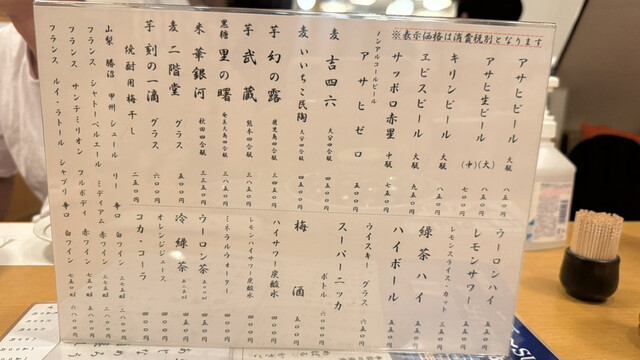 ※表示価格は消費税別となります
アサヒビール 大瓶 八五〇円
アサヒ生ビール (大) 八五〇円
(中) 七〇〇円
キリンビール 大瓶 八五〇円
エビスビール 大瓶 九五〇円
サッポロ赤星 中瓶 七五〇円
ノンアルコールビール
アサヒゼロ 五五〇円
麦 吉四六 大分四合瓶 五〇〇〇円
麦 いいちこ民陶 大分四合瓶 四五〇〇円
芋 幻の露 鹿児島四合瓶 三五〇〇円
芋 武蔵 熊本四合瓶 三八五〇円
黒糖 里の曙 奄美大島四合瓶 三八五〇円
米 華銀河 秋田四合瓶 三三五〇円
麦 二階堂 グラス 五〇〇円
芋 刻の一滴 グラス 六〇〇円
焼酎用梅干し 二五〇円
山梨 勝沼 甲州シュールリー 辛口 白ワイン
フランス シャトーベルエール ミディアム 赤ワイン
フランス サンテミリオン フルボディ 赤ワイン
フランス ルイ・ラトール シャブリ 辛口 白ワイン
ウーロンハイ 五五〇円
レモンサワー 五五〇円
レモンスライス・カット 三五〇円
緑茶ハイ 五五〇円
ハイボール 五五〇円
ウイスキー グラス 六五〇円
スーパーニッカ ボトル
梅酒 五五〇円
ハイサワー炭酸水 四〇〇円
レモンハイサワー炭酸水 四〇〇円
ミネラルウォーター 四〇〇円
ウーロン茶 四五〇円
冷緑茶 四五〇円
オレンジジュース 四〇〇円
コカ・コーラ 四〇〇円